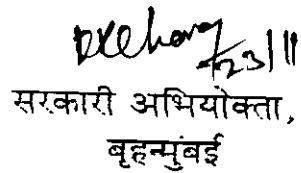 23/11
सरकारी अभियोक्ता,
बृहन्मुंबई